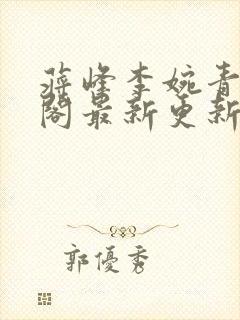 蒋峰李婉青
阁最新更新
郭優秀